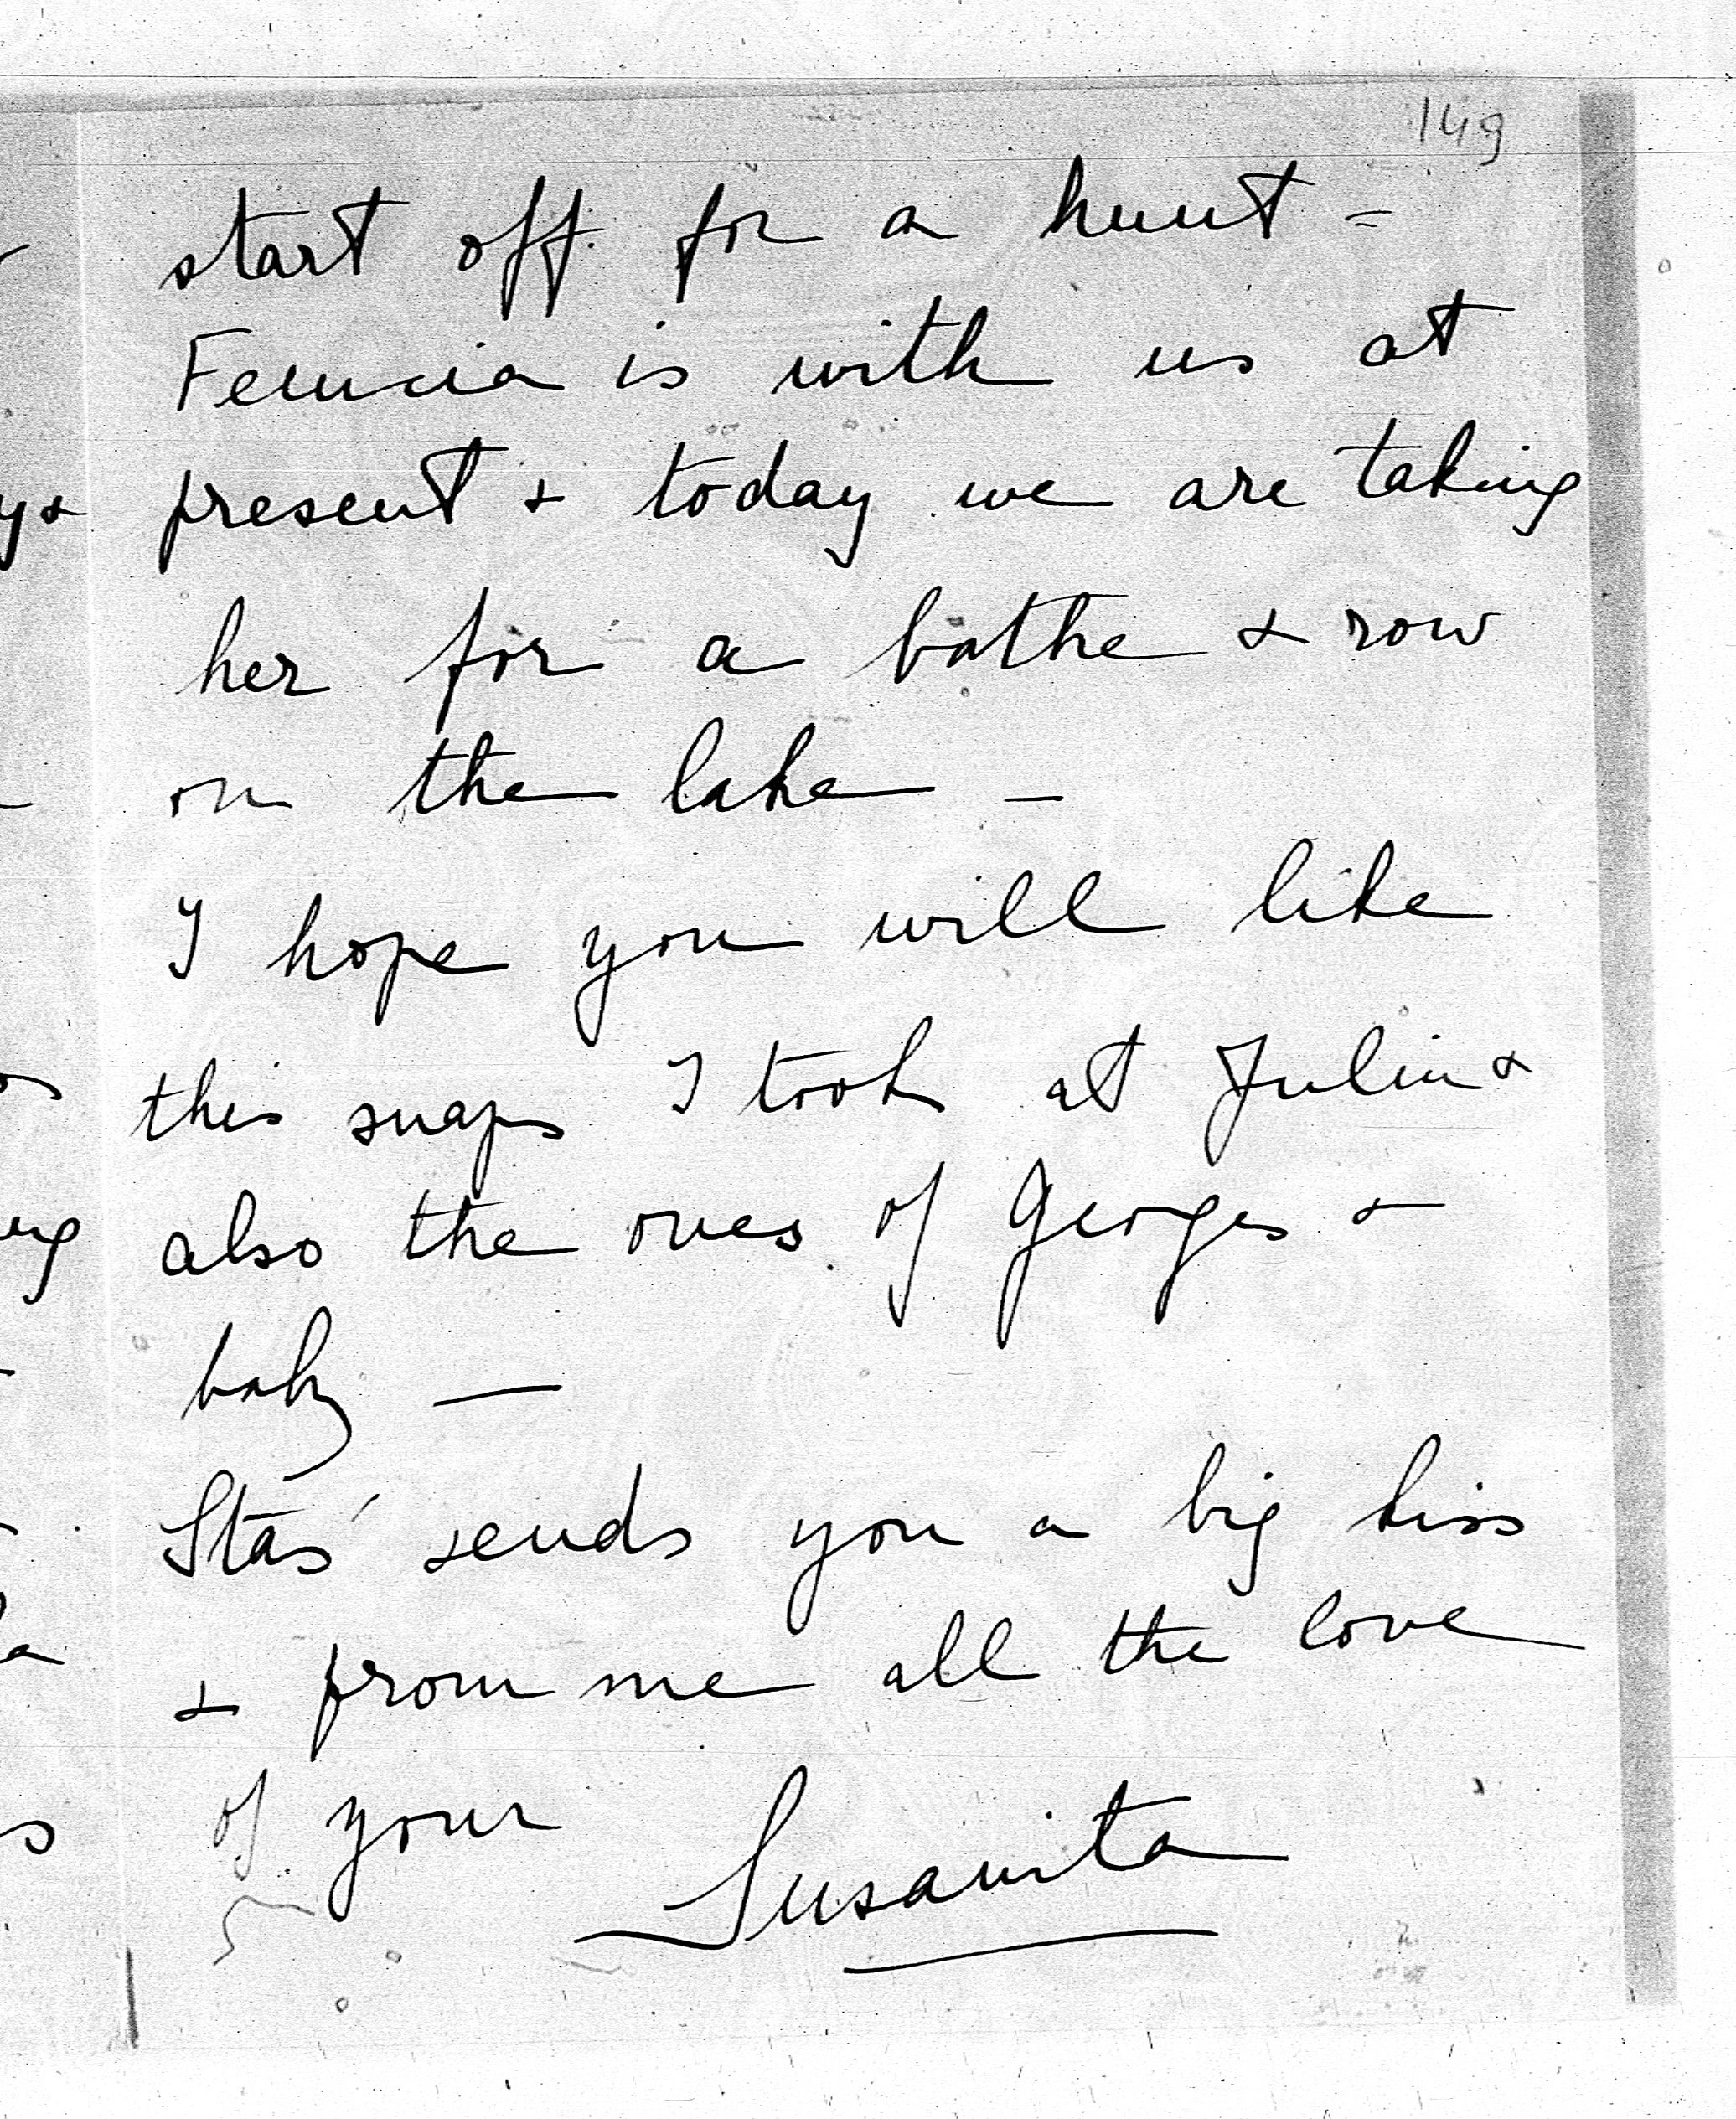 149
start off for a hunt =
is with us at
present & today we are taking
her for a bathe & row
on the lake –
I hope you will like
this snaps I took at Julin &
also the ones of Georges &
baby —
Staś sends you a big kiss
& from me all the love
of your
Susanita